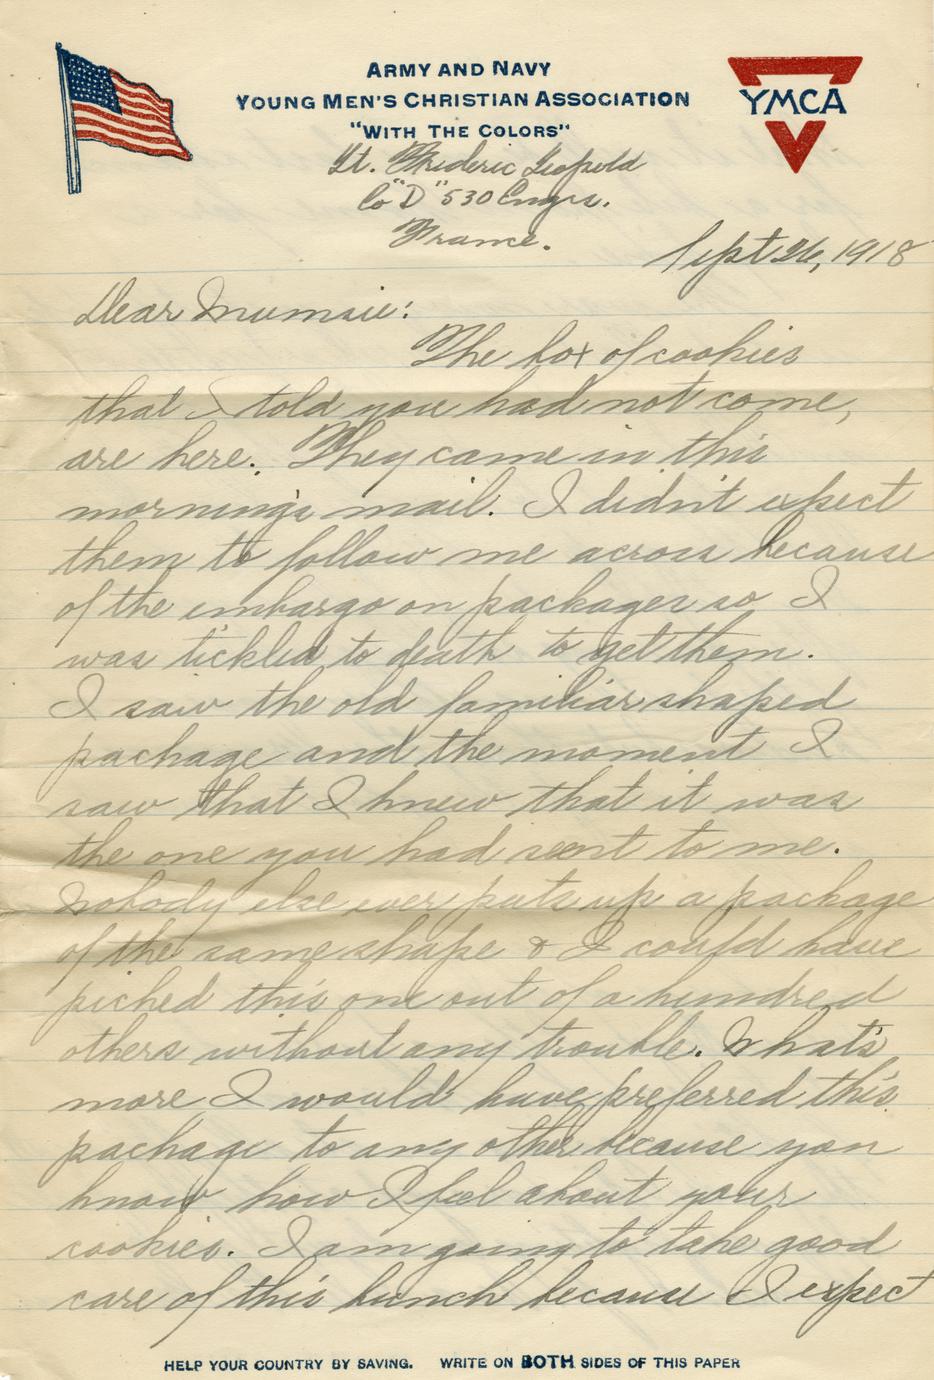 ARMY AND NAVY
YOUNG MEN'S CHRISTIAN ASSOCIATION
"WITH THE COLORS"
YMCA
Lt. Frederic Leopold
Co "D" 530 Engrs.
France.
Sept 26, 1918
Dear Mumsie:
The box of cookies
that I told you had not come,
are here. They came in this
morning's mail. I didn't expect
them to follow me across because
of the embargo on packages so I
was tickled to death to get them.
I saw the old familiar shaped
package and the moment I
saw that I knew that it was
the one you had sent to me.
Nobody else ever puts up a package
of the same shape & I could have
picked this one out of a hundred
others without any trouble. What's
more I would have preferred this
package to any other because you
know how I feel about your
cookies. I am going to take good
care of this bunch because I expect
HELP YOUR COUNTRY BY SAVING. WRITE ON BOTH SIDES OF THIS PAPER